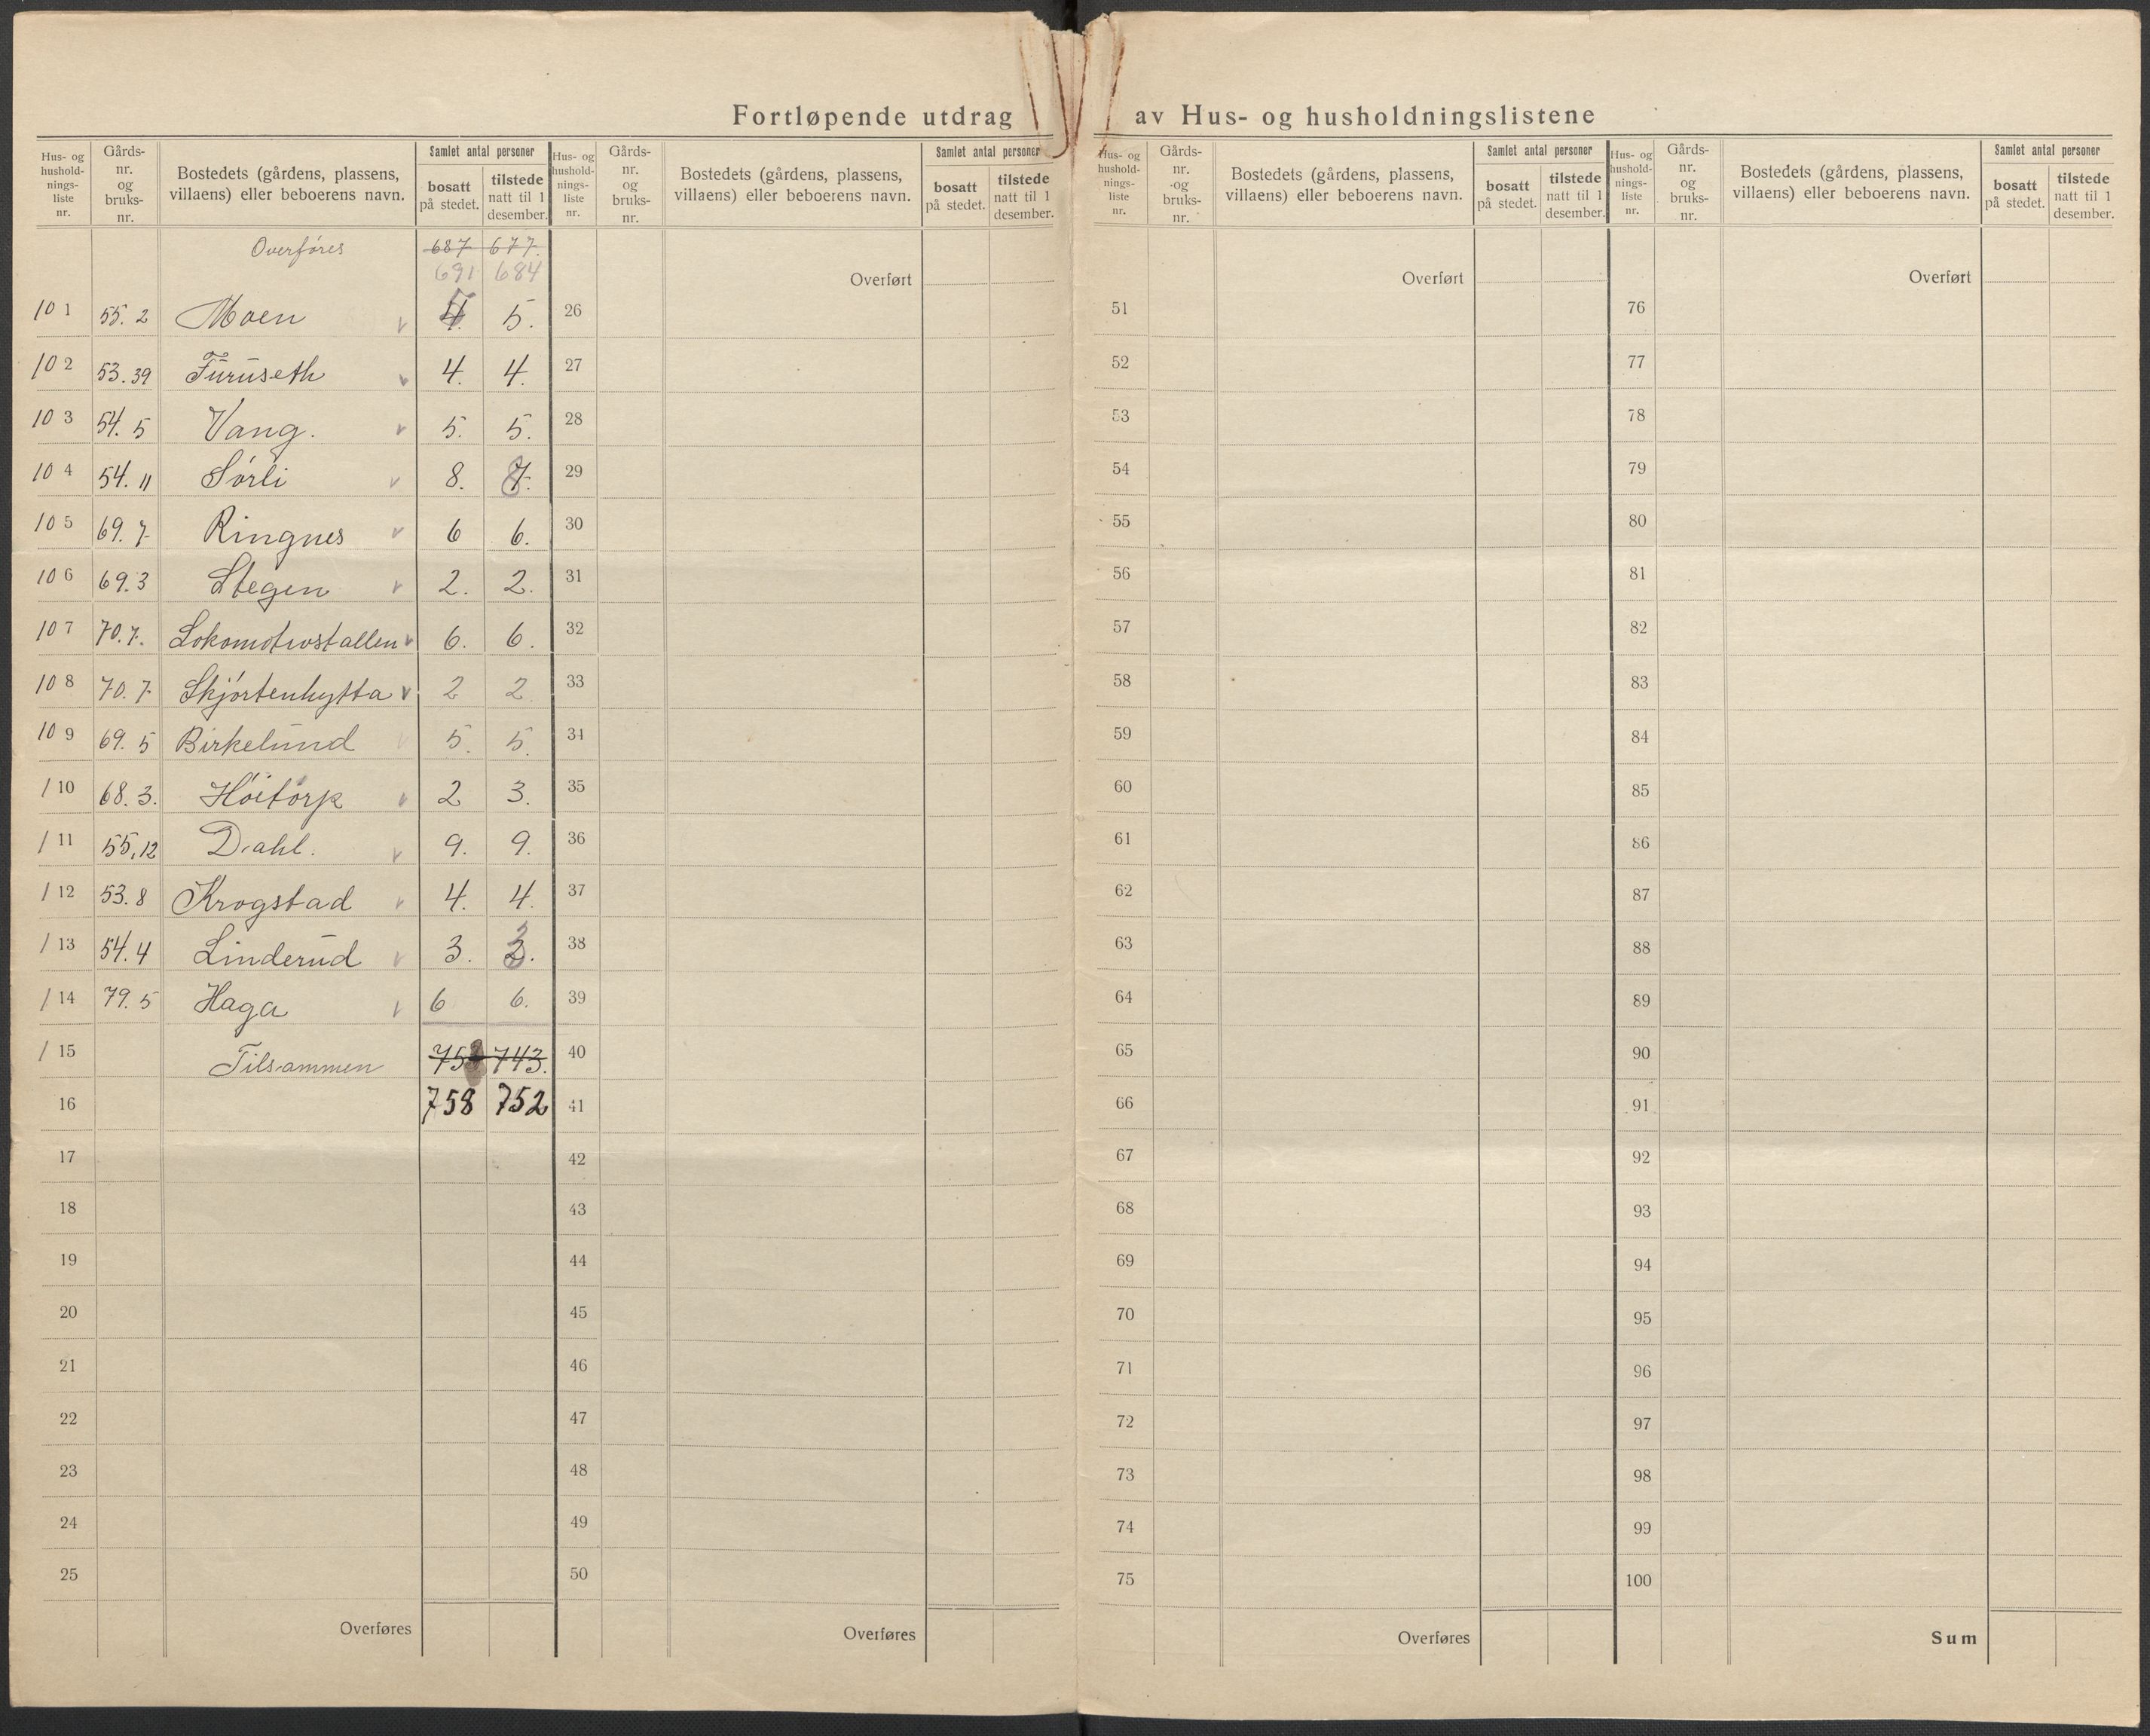 Fortløpende utdrag av Hus- og husholdningslistene
Hus- og hushold-nings-liste nr. Gårds-nr. og bruks-nr. Bostedets (gårdens, plassens, villaens) eller beboerens navn. Samlet antal personer bosatt på stedet. tilstede natt til 1 desember.
Hus- og hushold-nings-liste nr. Gårds-nr. og bruks-nr. Bostedets (gårdens, plassens, villaens) eller beboerens navn. Samlet antal personer bosatt på stedet. tilstede natt til 1 desember.
Hus- og hushold-nings-liste nr. Gårds-nr. og bruks-nr. Bostedets (gårdens, plassens, villaens) eller beboerens navn. Samlet antal personer bosatt på stedet. tilstede natt til 1 desember.
Hus- og hushold-nings-liste nr. Gårds-nr. og bruks-nr. Bostedets (gårdens, plassens, villaens) eller beboerens navn. Samlet antal personer bosatt på stedet. tilstede natt til 1 desember.
Overføres 687 677.
691 684
101 55.2 Moen 5 5.
102 53.39 Furuseth 4. 4.
103 54.5 Vang. 5. 5.
104 54.11 Sørli 8. 8
105 69.7 Ringnes 6 6.
106 69.3 Stegen 2. 2.
107 70.7. Lokomotivstallen 6. 6.
108 70.7 Skjørtenhytta 2 2
109 69.5 Birkelund 5. 5.
110 68.3. Høitorp 2 3.
111 55,12 Dahl. 9. 9.
112 53.8 Krogstad 4. 4.
113 54.4 Linderud 3. 3.
114 79.5 Haga 6 6.
115 Tilsammen 743.
16 758 752
17
18
19
20
21
22
23
24
25
Overføres
Overført
26
27
28
29
30
31
32
33
34
35
36
37
38
39
40
41
42
43
44
45
46
47
48
49
50
Overføres
Overført
51
52
53
54
55
56
57
58
59
60
61
62
63
64
65
66
67
68
69
70
71
72
73
74
75
Overføres
Overført
76
77
78
79
80
81
82
83
84
85
86
87
88
89
90
91
92
93
94
95
96
97
98
99
100
Sum